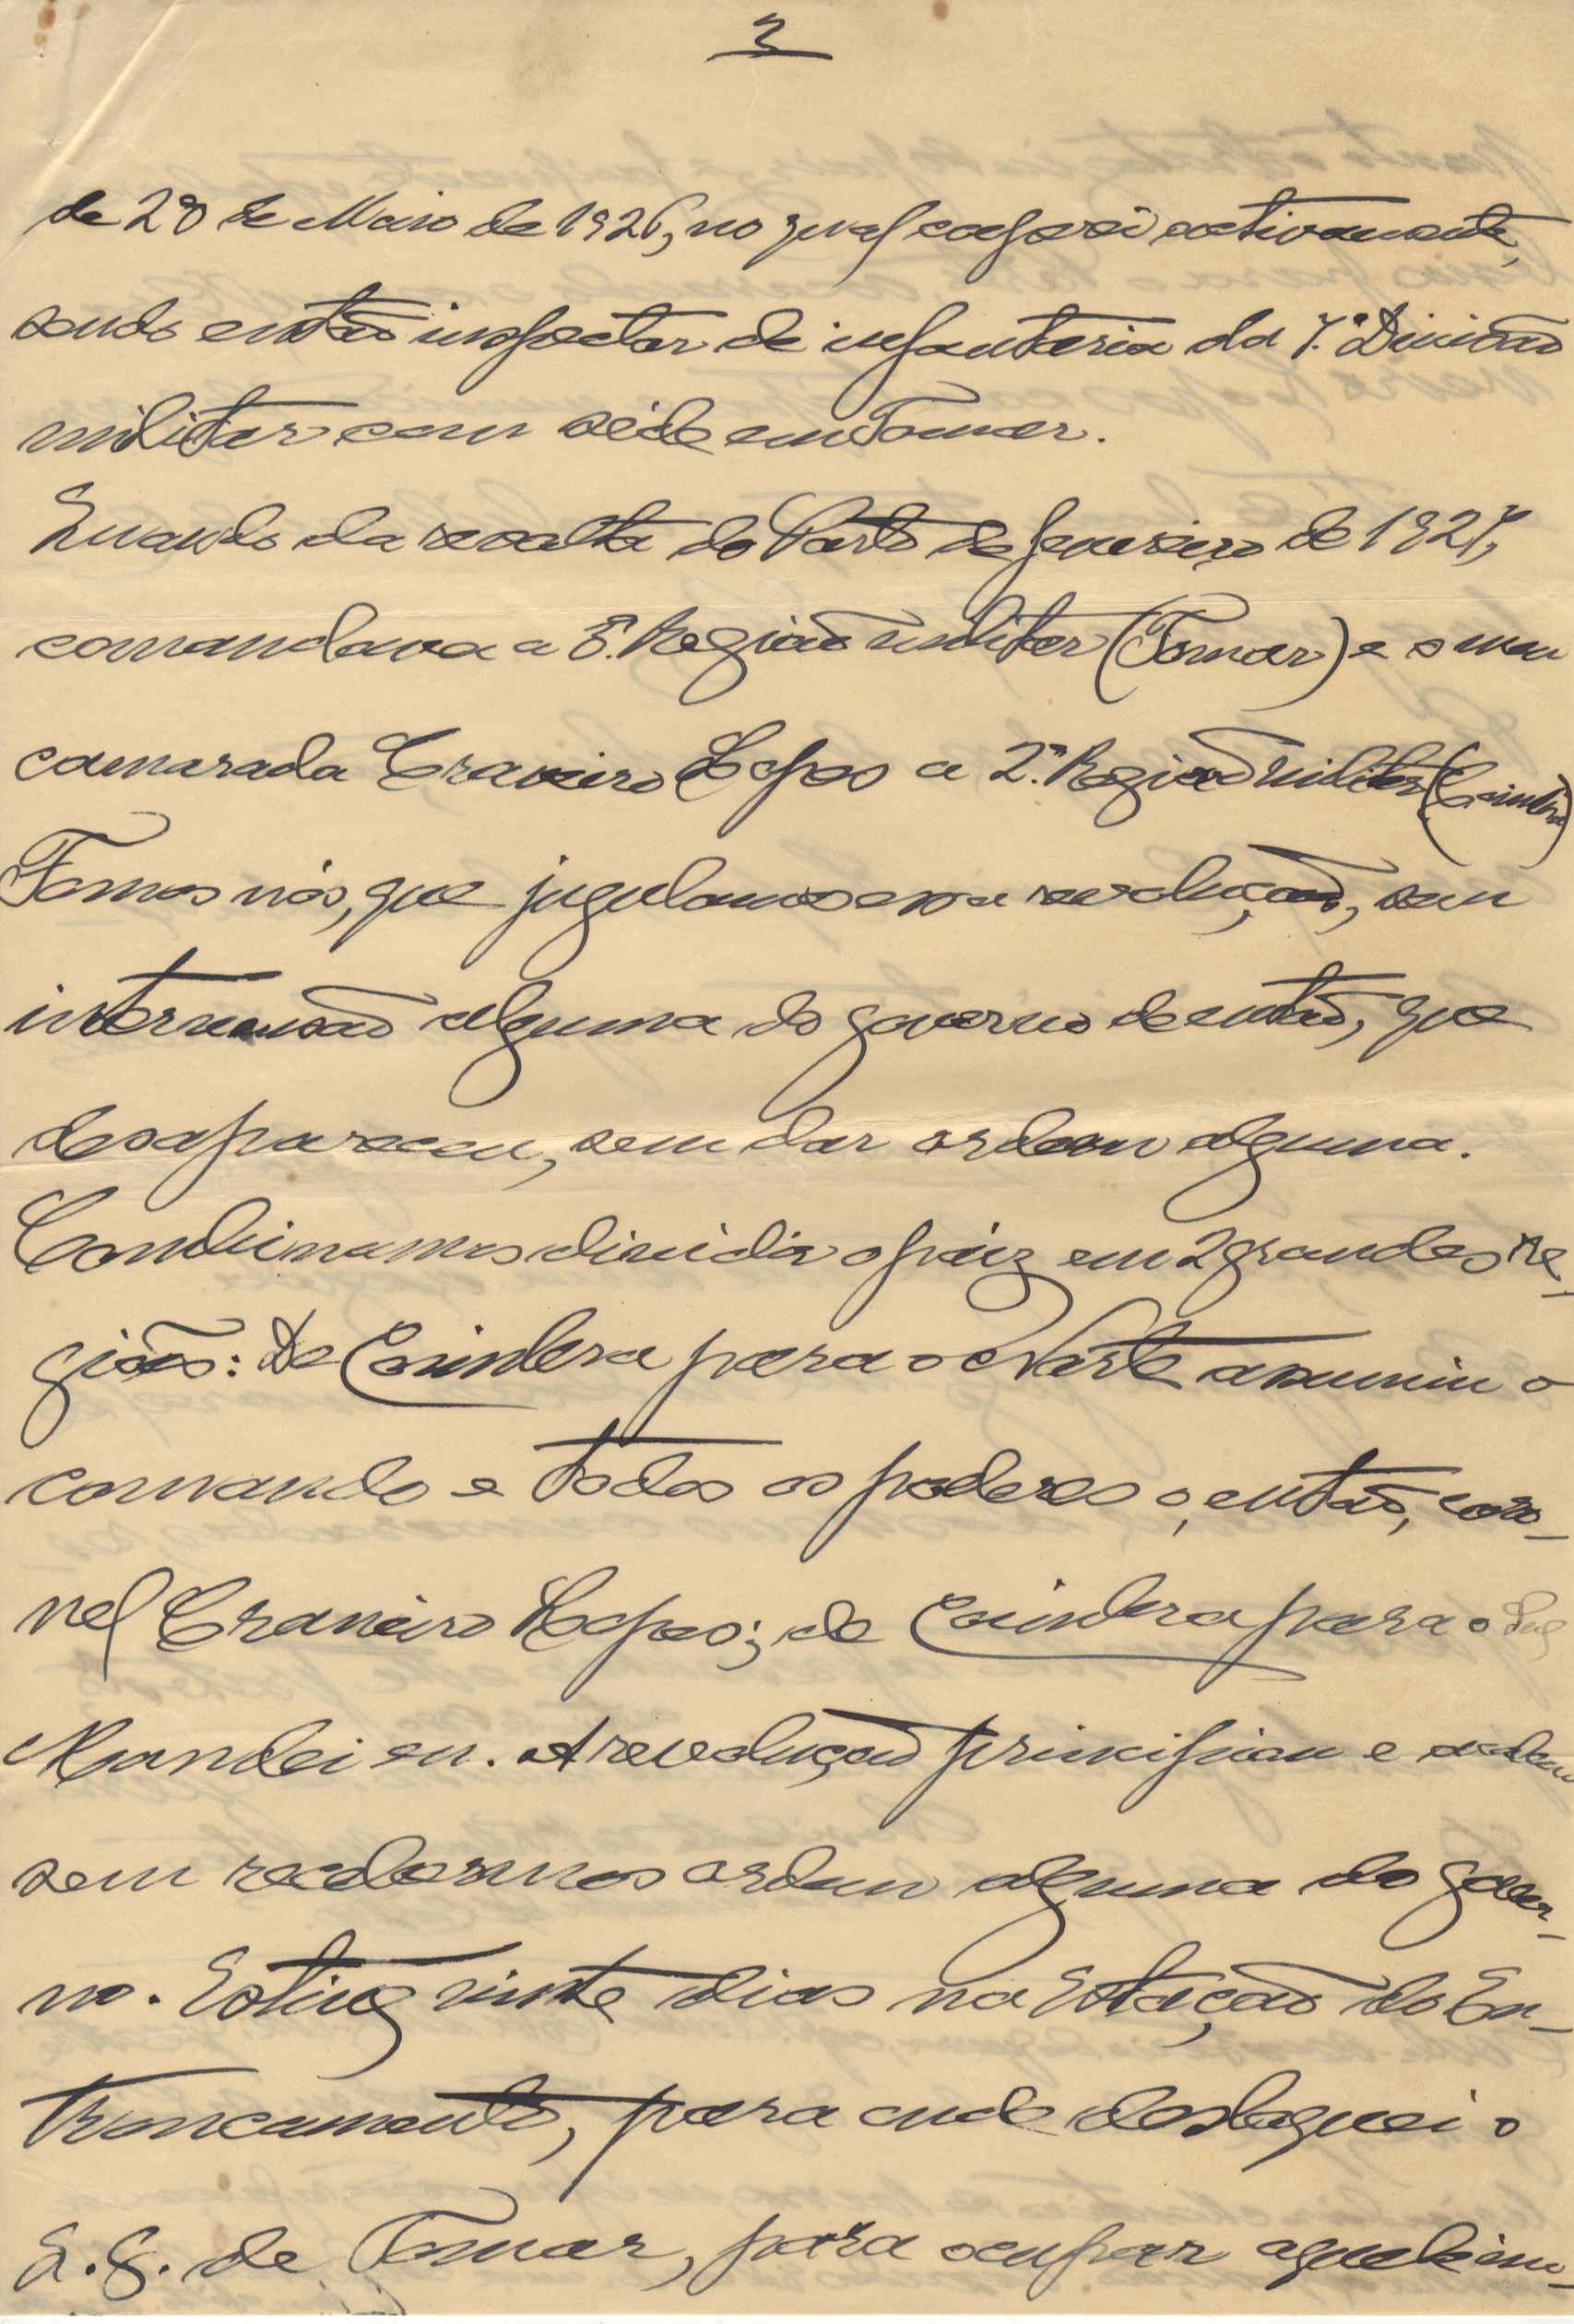 3
de 28 de Maio de 1926, no qual colaborei activamente,
sendo então inspector de infantaria da 7.ª Divisão
militar com séde em Tomar.
Quando da revolta do Porto de fevereiro de 1927,
comandava a Região militar (Tomar) e o meu
camarada Craveiro Lopes a 2.ª Região militar (Coimbra)
Fomos nós, que jugulamos essa revolução, sem
intervensão alguma do governo de então, que
desapareceu, sem dar ordem alguma.
Combinamos dividir o paiz em 2 grandes re-
giões: De Coimbra para o Norte assumiu o
comando e todos os poderes o, então, coro-
nel Craveiro Lopes; de Coimbra para o Sul
Mandei eu. A revolução principiou e acabou
sem recebermos ordem alguma do gover-
no. Estive vinte dias na Estação do En-
troncamento, para onde desloquei o
Q.G. de Tomar, para ocupar aquele im-